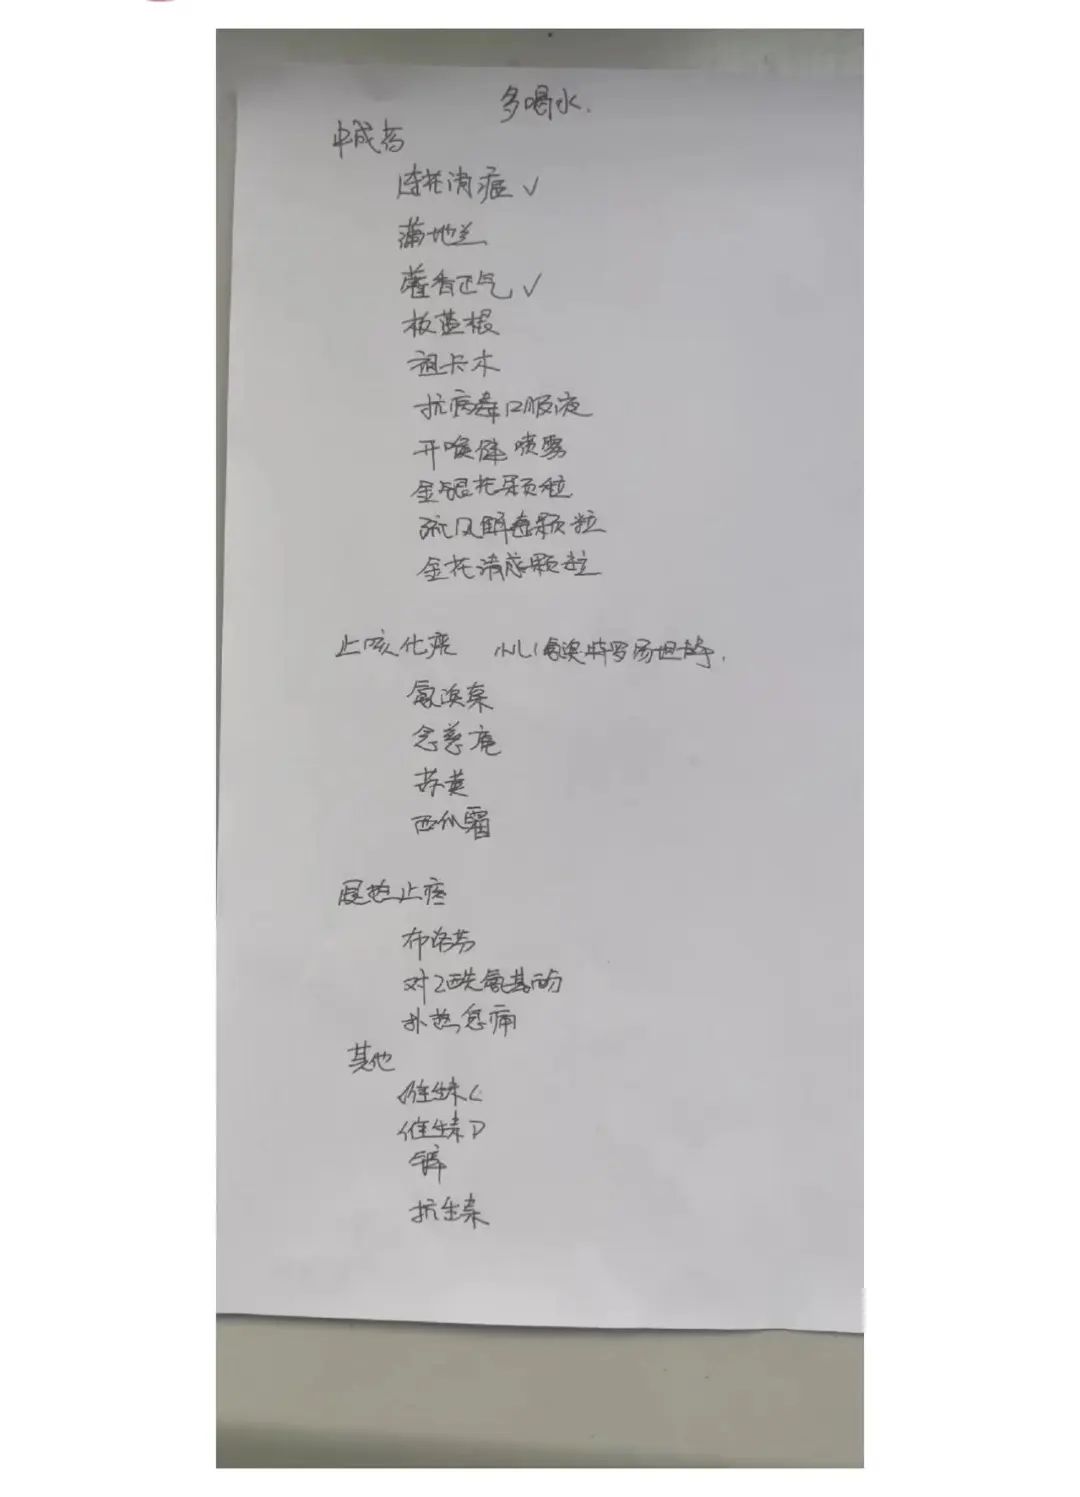 多喝水.
中成药
连花清瘟 √
蒲地兰
藿香正气 √
板蓝根
祖卡木
抗病毒口服液
开喉健喷雾
金银花颗粒
疏风解毒颗粒
金花清感颗粒
止咳化痰 小儿氨溴特罗
氨溴索
念慈庵
苏黄
西瓜霜
退热止疼
布洛芬
对乙酰氨基酚
扑热息痛
其他
维生素C
维生素D
锌
抗生素